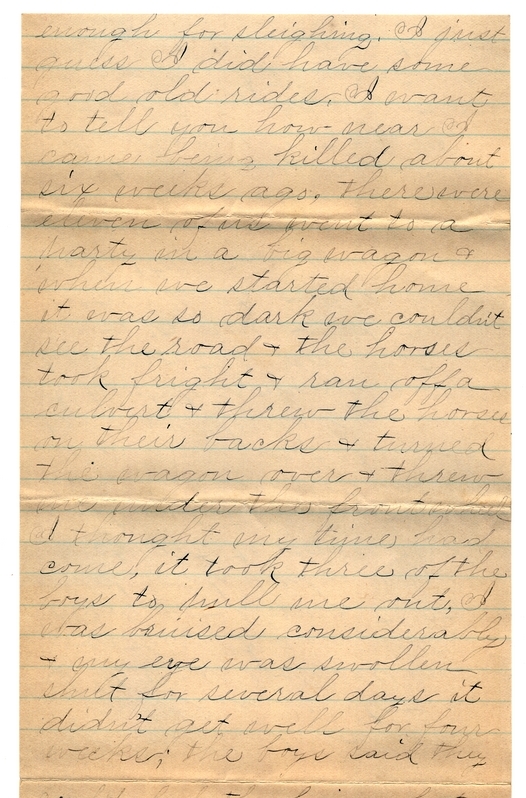 enough for sleighing. I just
guess I did have some
good old rides. I want
to tell you how near I
came being killed about
six weeks ago. there were
eleven of us went to a
party in a big wagon &
when we started home
it was so dark we couldn't
see the road & the horses
took fright & ran off a
culvert & threw the horses
on their backs & turned
the wagon over & threw
me under the front wheel
I thought my time had
come, it took three of the
boys to pull me out, I
was bruised considerably
& my eye was swollen
shut for several days it
didn't get well for four
weeks; the boys said they